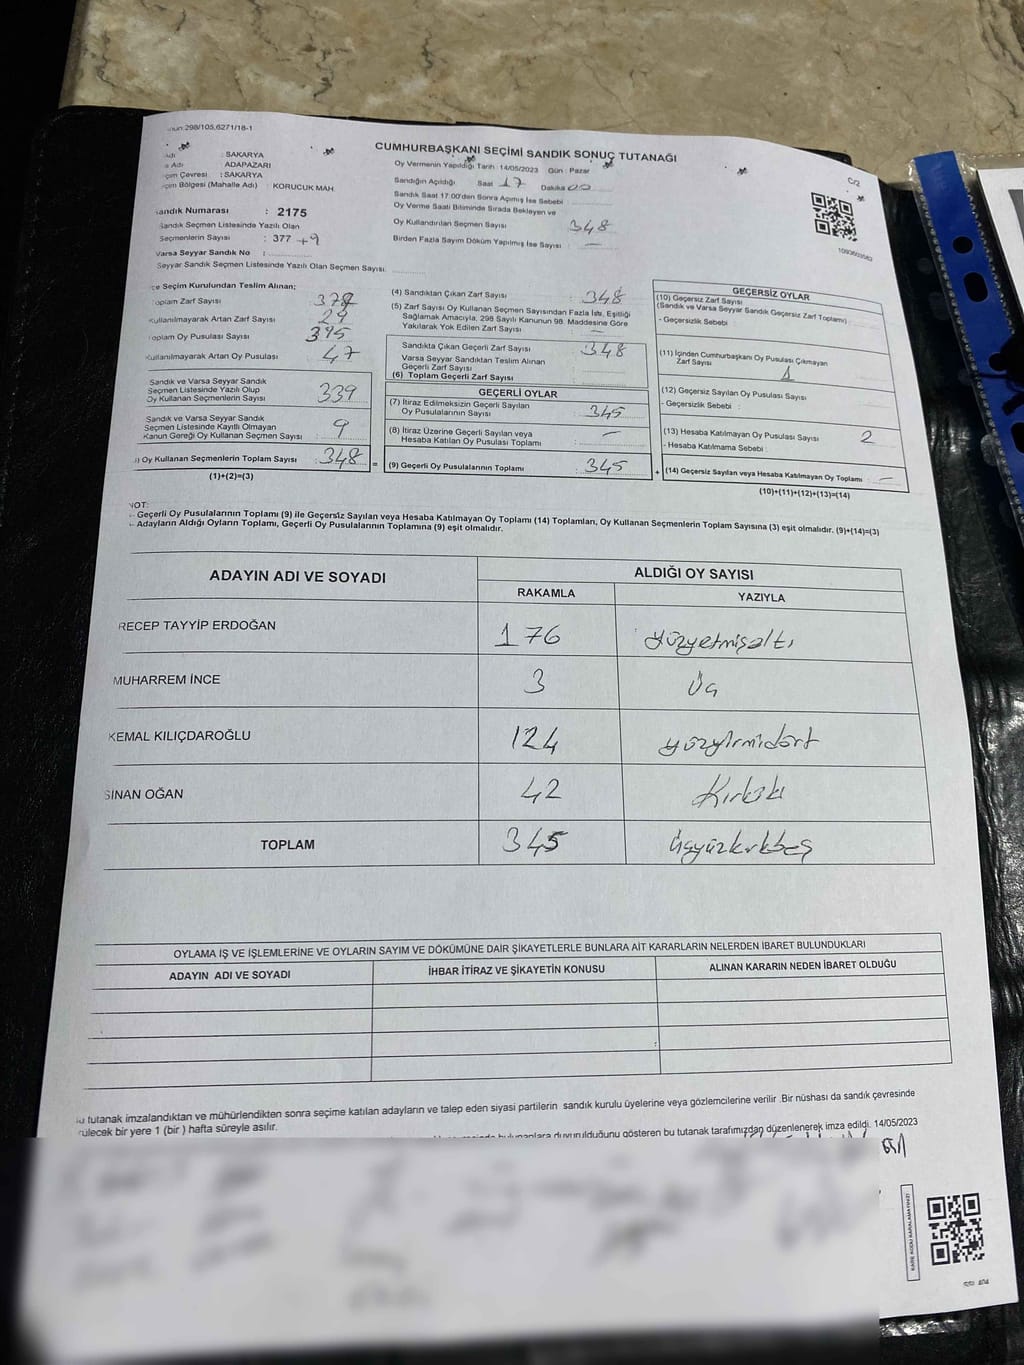 298/105,6271/18-1
CUMHURBAŞKANI SEÇİMİ SANDIK SONUÇ TUTANAĞI
C/2
: SAKARYA
Adı : ADAPAZARI
Çevresi : SAKARYA
Bölgesi (Mahalle Adı) : KORUCUK MAH.
Sandık Numarası : 2175
Sandık Seçmen Listesinde Yazılı Olan
Seçmenlerin Sayısı : 377 +9
Varsa Seyyar Sandık No :
Seyyar Sandık Seçmen Listesinde Yazılı Olan Seçmen Sayısı:
Oy Vermenin Yapıldığı Tarih : 14/05/2023 Gün : Pazar
Sandığın Açıldığı Saat 17 Dakika 00
Sandık Saat 17:00'den Sonra Açılmış İse Sebebi :
Oy Verme Saati Bitiminde Sırada Bekleyen ve
Oy Kullandırılan Seçmen Sayısı : 348
Birden Fazla Sayım Döküm Yapılmış İse Sayısı : —
Seçim Kurulundan Teslim Alınan;
Toplam Zarf Sayısı
Kullanılmayarak Artan Zarf Sayısı 29
Toplam Oy Pusulası Sayısı 395
Kullanılmayarak Artan Oy Pusulası 47
Sandık ve Varsa Seyyar Sandık
Seçmen Listesinde Yazılı Olup
Oy Kullanan Seçmenlerin Sayısı 339
Sandık ve Varsa Seyyar Sandık
Seçmen Listesinde Kayıtlı Olmayan
Kanun Gereği Oy Kullanan Seçmen Sayısı : 9
Oy Kullanan Seçmenlerin Toplam Sayısı 348
(1)+(2)=(3)
=
(4) Sandıktan Çıkan Zarf Sayısı : 348
(5) Zarf Sayısı Oy Kullanan Seçmen Sayısından Fazla İse, Eşitliği
Sağlamak Amacıyla, 298 Sayılı Kanunun 98. Maddesine Göre
Yakılarak Yok Edilen Zarf Sayısı : —
Sandıkta Çıkan Geçerli Zarf Sayısı : 348
Varsa Seyyar Sandıktan Teslim Alınan
Geçerli Zarf Sayısı :
(6) Toplam Geçerli Zarf Sayısı :
GEÇERLİ OYLAR
(7) İtiraz Edilmeksizin Geçerli Sayılan
Oy Pusulalarının Sayısı : 345
(8) İtiraz Üzerine Geçerli Sayılan veya
Hesaba Katılan Oy Pusulası Toplamı : —
(9) Geçerli Oy Pusulalarının Toplamı : 345
+
GEÇERSİZ OYLAR
(10) Geçersiz Zarf Sayısı
(Sandık ve Varsa Seyyar Sandık Geçersiz Zarf Toplamı) :
- Geçersizlik Sebebi :
(11) İçinden Cumhurbaşkanı Oy Pusulası Çıkmayan
Zarf Sayısı : 1
(12) Geçersiz Sayılan Oy Pusulası Sayısı :
- Geçersizlik Sebebi :
(13) Hesaba Katılmayan Oy Pusulası Sayısı : 2
- Hesaba Katılmama Sebebi :
(14) Geçersiz Sayılan veya Hesaba Katılmayan Oy Toplamı : —
(10)+(11)+(12)+(13)=(14)
NOT:
- Geçerli Oy Pusulalarının Toplamı (9) ile Geçersiz Sayılan veya Hesaba Katılmayan Oy Toplamı (14) Toplamları, Oy Kullanan Seçmenlerin Toplam Sayısına (3) eşit olmalıdır. (9)+(14)=(3)
- Adayların Aldığı Oyların Toplamı, Geçerli Oy Pusulalarının Toplamına (9) eşit olmalıdır.
ADAYIN ADI VE SOYADI ALDIĞI OY SAYISI
RAKAMLA YAZIYLA
RECEP TAYYİP ERDOĞAN 176 yüzyetmişaltı
MUHARREM İNCE 3 Üç
KEMAL KILIÇDAROĞLU 124 yüzyirmidört
SİNAN OĞAN 42 Kırkiki
TOPLAM 345 üçyüzkırkbeş
OYLAMA İŞ VE İŞLEMLERİNE VE OYLARIN SAYIM VE DÖKÜMÜNE DAİR ŞİKAYETLERLE BUNLARA AİT KARARLARIN NELERDEN İBARET BULUNDUKLARI
ADAYIN ADI VE SOYADI İHBAR İTİRAZ VE ŞİKAYETİN KONUSU ALINAN KARARIN NEDEN İBARET OLDUĞU
tutanak imzalandıktan ve mühürlendikten sonra seçime katılan adayların ve talep eden siyasi partilerin sandık kurulu üyelerine veya gözlemcilerine verilir .Bir nüshası da sandık çevresinde
bir yere 1 (bir ) hafta süreyle asılır.
duyurulduğunu gösteren bu tutanak tarafımızdan düzenlenerek imza edildi. 14/05/2023
KARE KODU KARALAMAYINIZ!